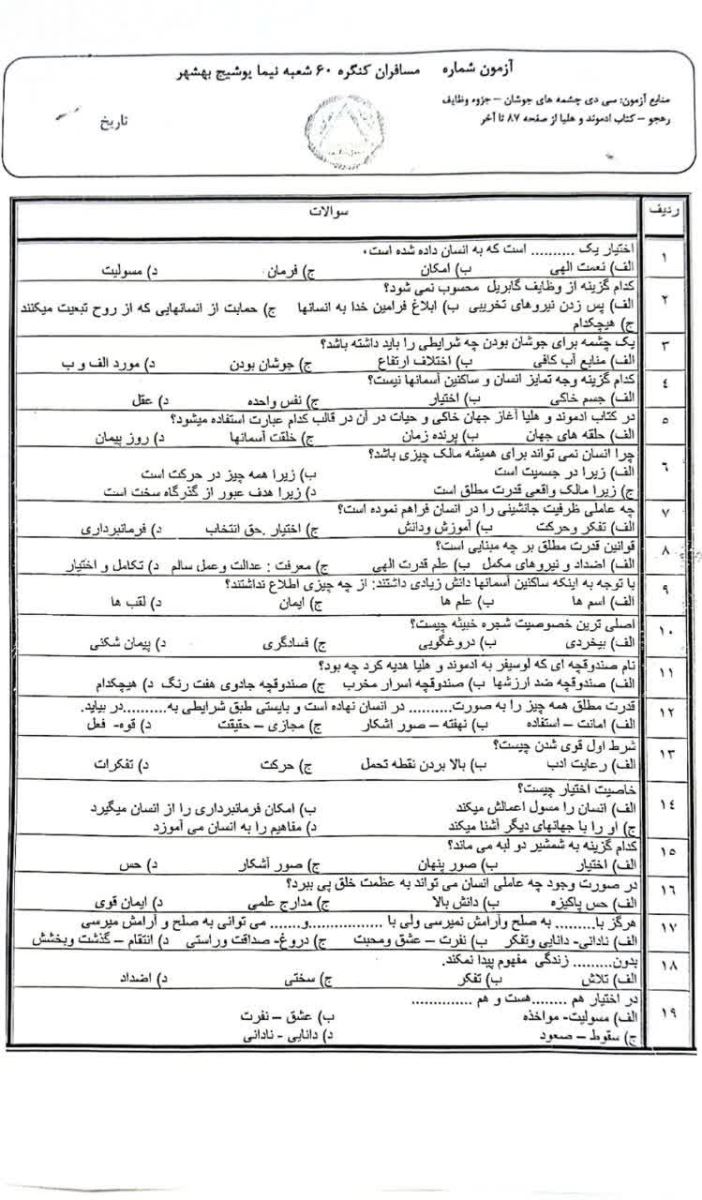 آزمون شماره مسافران کنگره ۶۰ شعبه نیما یوشیج بهشهر
منابع آزمون: سی دی چشمه های جوشان – جزوه وظایف
رهجو – کتاب ادموند و هلیا از صفحه ۸۷ تا آخر
تاریخ
ردیف سوالات
۱ اختیار یک .......... است که به انسان داده شده است.
الف) نعمت الهی ب) امکان ج) فرمان د) مسولیت
۲ کدام گزینه از وظایف گابریل محسوب نمی شود؟
الف) پس زدن نیروهای تخریبی ب) ابلاغ فرامین خدا به انسانها ج) حمایت از انسانهایی که از روح تبعیت میکنند
ج) هیچکدام
۳ یک چشمه برای جوشان بودن چه شرایطی را باید داشته باشد؟
الف) منابع آب کافی ب) اختلاف ارتفاع ج) جوشان بودن د) مورد الف و ب
۴ کدام گزینه وجه تمایز انسان و ساکنین آسمانها نیست؟
الف) جسم خاکی ب) اختیار ج) نفس واحده د) عقل
۵ در کتاب ادموند و هلیا آغاز جهان خاکی و حیات در آن در قالب کدام عبارت استفاده میشود؟
الف) حلقه های جهان ب) پرنده زمان ج) خلقت آسمانها د) روز پیمان
۶ چرا انسان نمی تواند برای همیشه مالک چیزی باشد؟
الف) زیرا در جسمیت است ب) زیرا همه چیز در حرکت است
ج) زیرا مالک واقعی قدرت مطلق است د) زیرا هدف عبور از گذرگاه سخت است
۷ چه عاملی ظرفیت جانشینی را در انسان فراهم نموده است؟
الف) تفکر وحرکت ب) آموزش ودانش ج) اختیار .حق انتخاب د) فرمانبرداری
۸ قوانین قدرت مطلق بر چه مبنایی است؟
الف) اضداد و نیروهای مکمل ب) علم قدرت الهی ج) معرفت : عدالت وعمل سالم د) تکامل و اختیار
۹ با توجه به اینکه ساکنین آسمانها دانش زیادی داشتند: از چه چیزی اطلاع نداشتند؟
الف) اسم ها ب) علم ها ج) ایمان د) لقب ها
۱۰ اصلی ترین خصوصیت شجره خبیثه چیست؟
الف) بیخردی ب) دروغگویی ج) فسادگری د) پیمان شکنی
۱۱ نام صندوقچه ای که لوسیفر به ادموند و هلیا هدیه کرد چه بود؟
الف) صندوقچه ضد ارزشها ب) صندوقچه اسرار مخرب ج) صندوقچه جادوی هفت رنگ د) هیچکدام
۱۲ قدرت مطلق همه چیز را به صورت.......... در انسان نهاده است و بایستی طبق شرایطی به..........در بیاید.
الف) امانت – استفاده ب) نهفته – صور اشکار ج) مجازی – حقیقت د) قوه- فعل
۱۳ شرط اول قوی شدن چیست؟
الف) رعایت ادب ب) بالا بردن نقطه تحمل ج) حرکت د) تفکرات
۱۴ خاصیت اختیار چیست؟
الف) انسان را مسول اعمالش میکند ب) امکان فرمانبرداری را از انسان میگیرد
ج) او را با جهانهای دیگر آشنا میکند د) مفاهیم را به انسان می آموزد
۱۵ کدام گزینه به شمشیر دو لبه می ماند؟
الف) اختیار ب) صور پنهان ج) صور آشکار د) حس
۱۶ در صورت وجود چه عاملی انسان می تواند به عظمت خلق پی ببرد؟
الف) حس پاکیزه ب) دانش بالا ج) مدارج علمی د) ایمان قوی
۱۷ هرگز با......... به صلح وآرامش نمیرسی ولی با .................و....... می توانی به صلح و آرامش میرسی
الف) نادانی- دانایی وتفکر ب) نفرت – عشق ومحبت ج) دروغ- صداقت وراستی د) انتقام – گذشت وبخشش
۱۸ بدون......... زندگی مفهوم پیدا نمکند.
الف) تلاش ب) تفکر ج) سختی د) اضداد
۱۹ در اختیار هم ........هست و هم ..............
الف) مسولیت- مواخذه ب) عشق – نفرت
ج) سقوط – صعود د) دانایی - نادانی